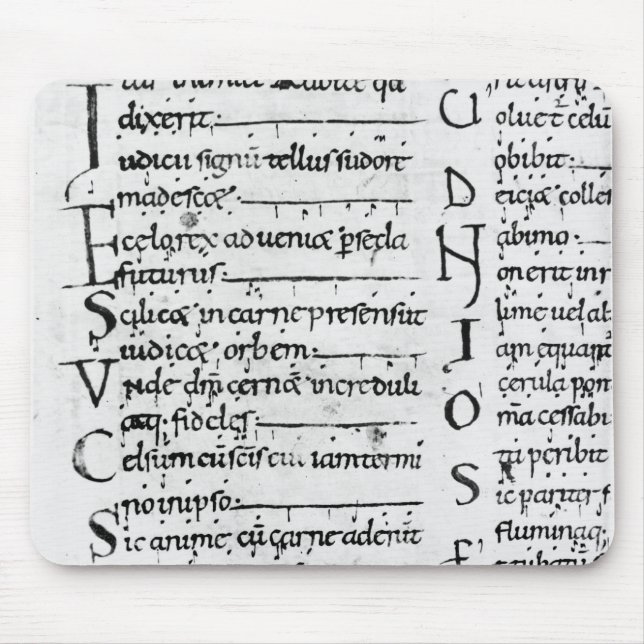 dixerit:
Iudicii signū tellus sudore
madescæ
E celo rex adveniæ p secla
futurus:
Scilicæ in carne presens ut
iudicæ orbem:
Vnde dm̄ cernæ increduli
atq; fideles:
Celsum cū sc̄is evi iam termi
no in ipso:
Sic anime cū carne aderūt
oluet celū
obibit:
Deiciæ colle
abimo:
Non erit in r
lime vel al
Iam equant
cerula pon
Om̄a cessabu
tā peribit
Sic pariter f
fluminaq;